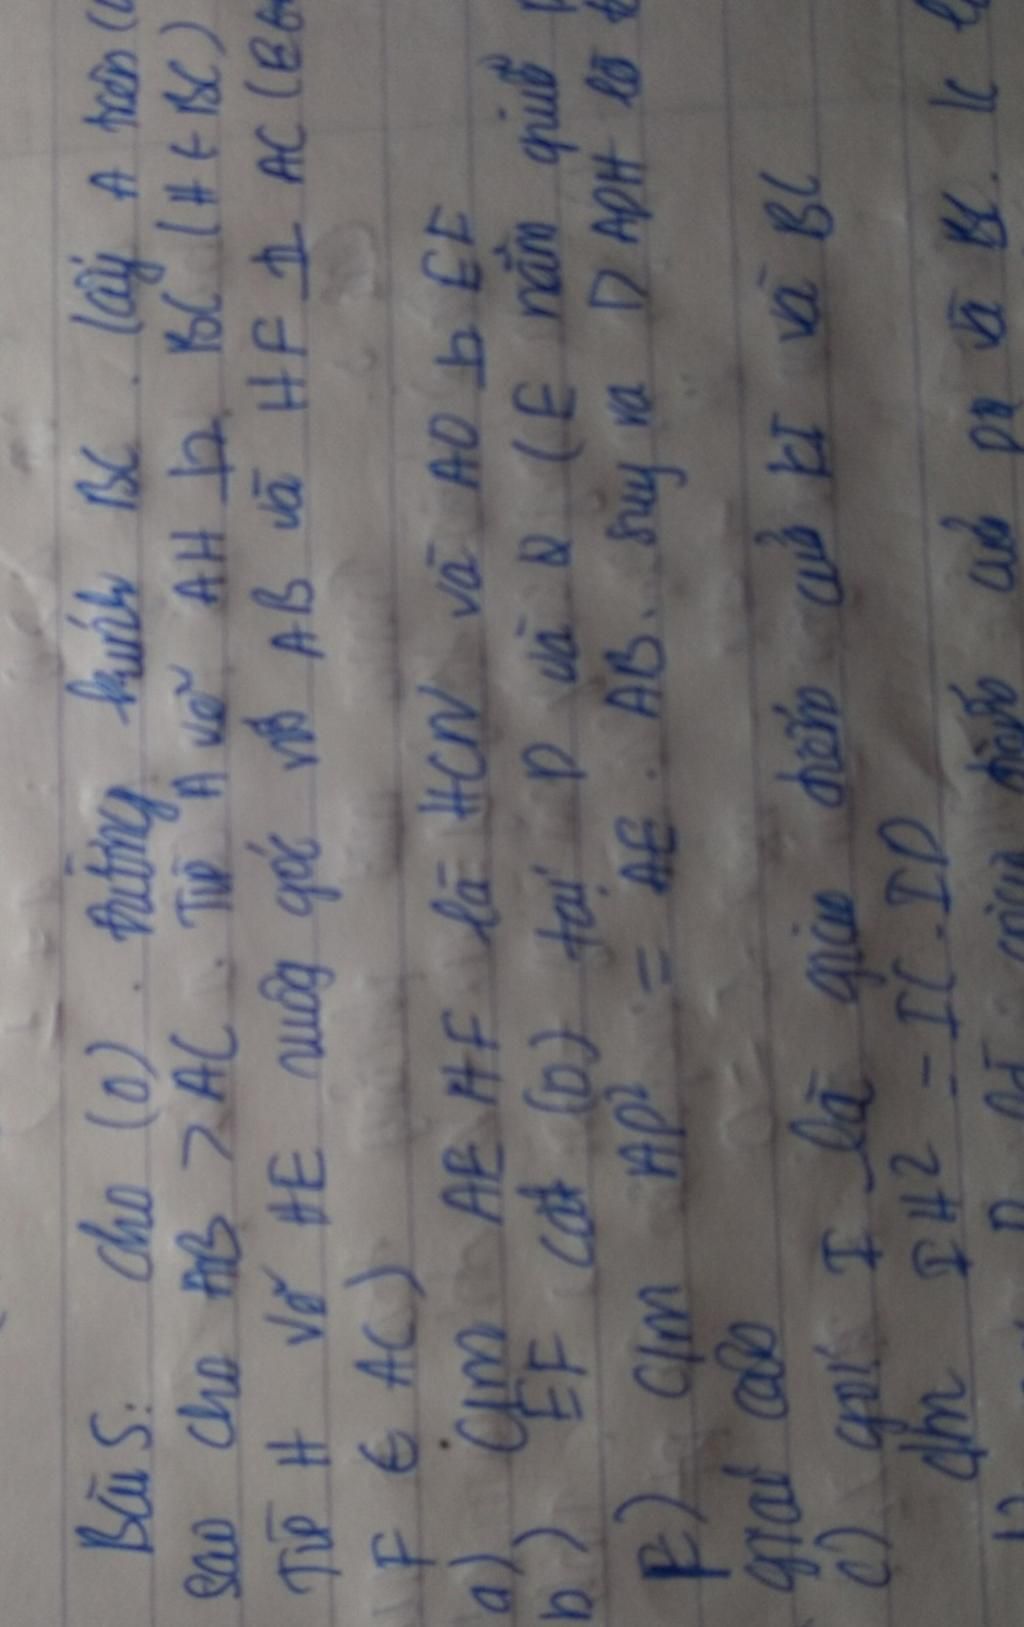 Bài 5: cho (O). đường kính BC. lấy A trên (
sao cho AB > AC. Từ A vẽ AH ⊥ BC (H ∈ BC)
Từ H vẽ HE vuông góc với AB và HF ⊥ AC (E
F ∈ AC)
a) C/m AEHF là HCN và AO ⊥ EF
b) EF cắt (O) tại P và Q (E nằm giữa P
F) C/m AP² = AE. AB. suy ra D APH là
giác cân
c) gọi I là giao của KI và BC
C/m IH² = IC.ID
của PQ và BC. K